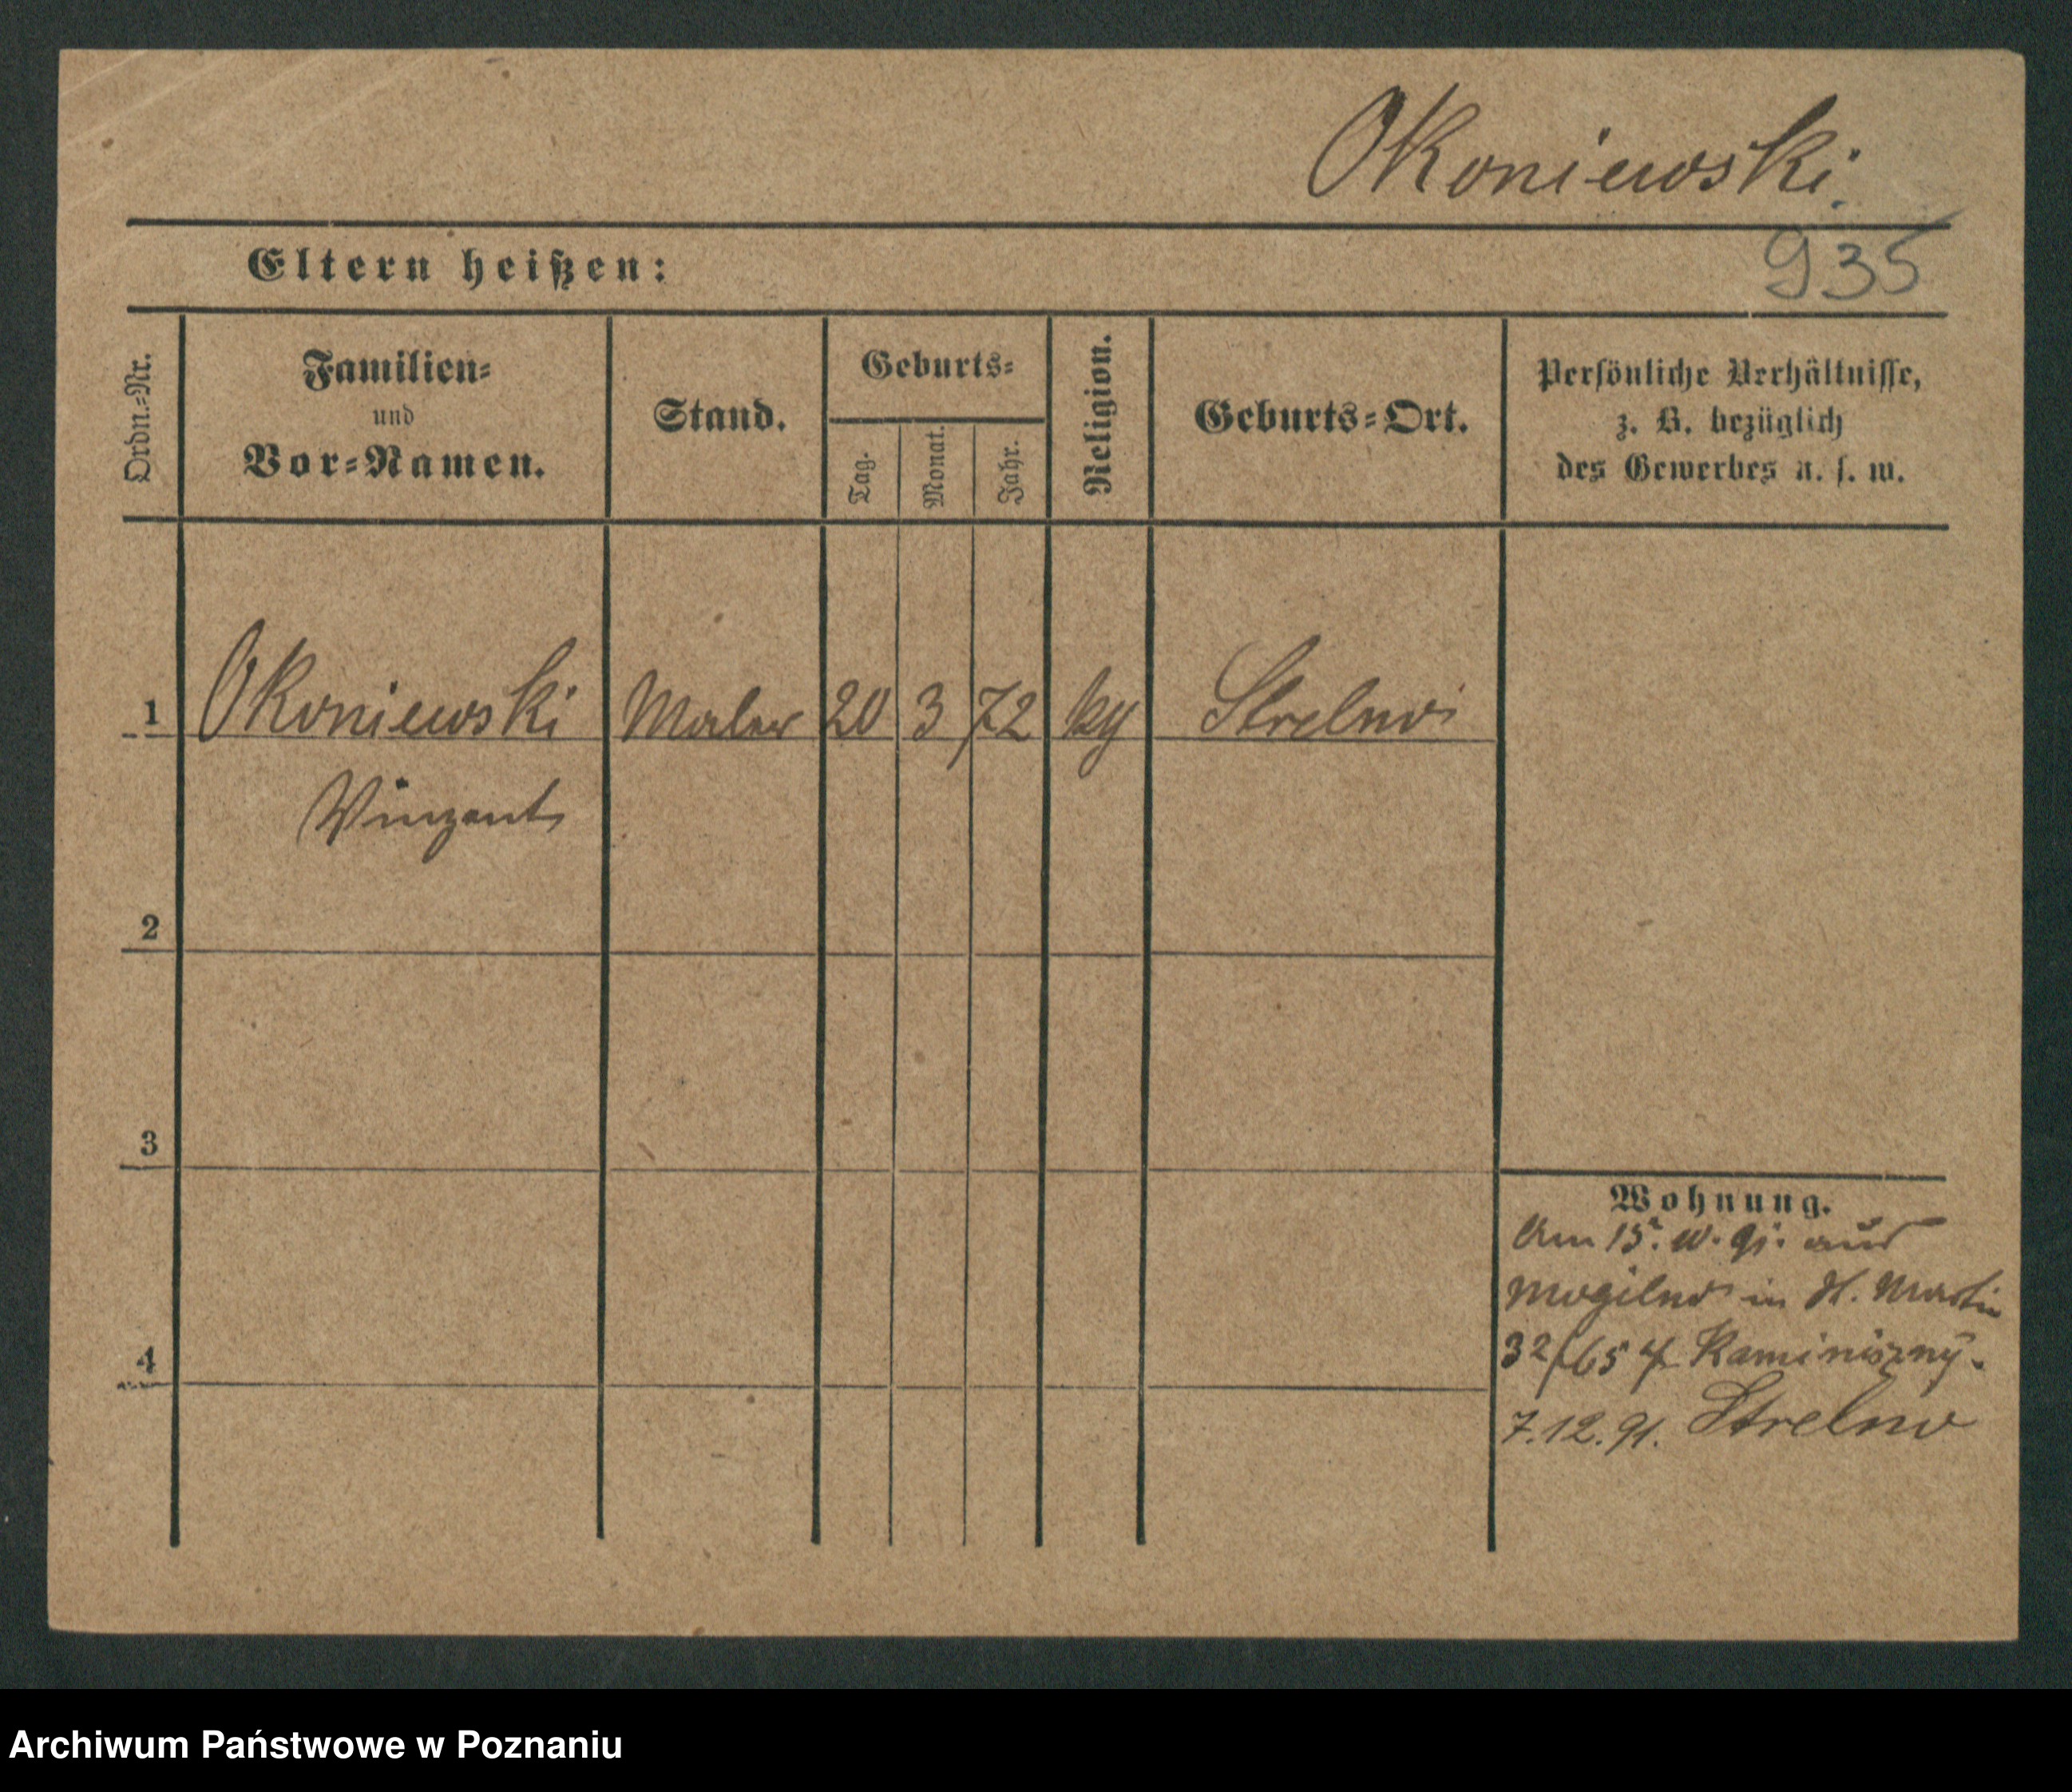 Okoniewski.
935
Eltern heißen:
Ordn.-Nr.
Familien-
und
Vor-Namen.
Stand.
Geburts-
Tag.
Monat.
Jahr.
Religion.
Geburts-Ort.
Persönliche Verhältnisse,
z. B. bezüglich
des Gewerbes u. s. w.
1 Okoniewski Maler 20 3 72 Strelno
Vinzent
2
3
4
Wohnung.
Am 15. 10. 91. aus
Mogilno in St. Martin
32/65
7.12.91. Strelno
Archiwum Państwowe w Poznaniu